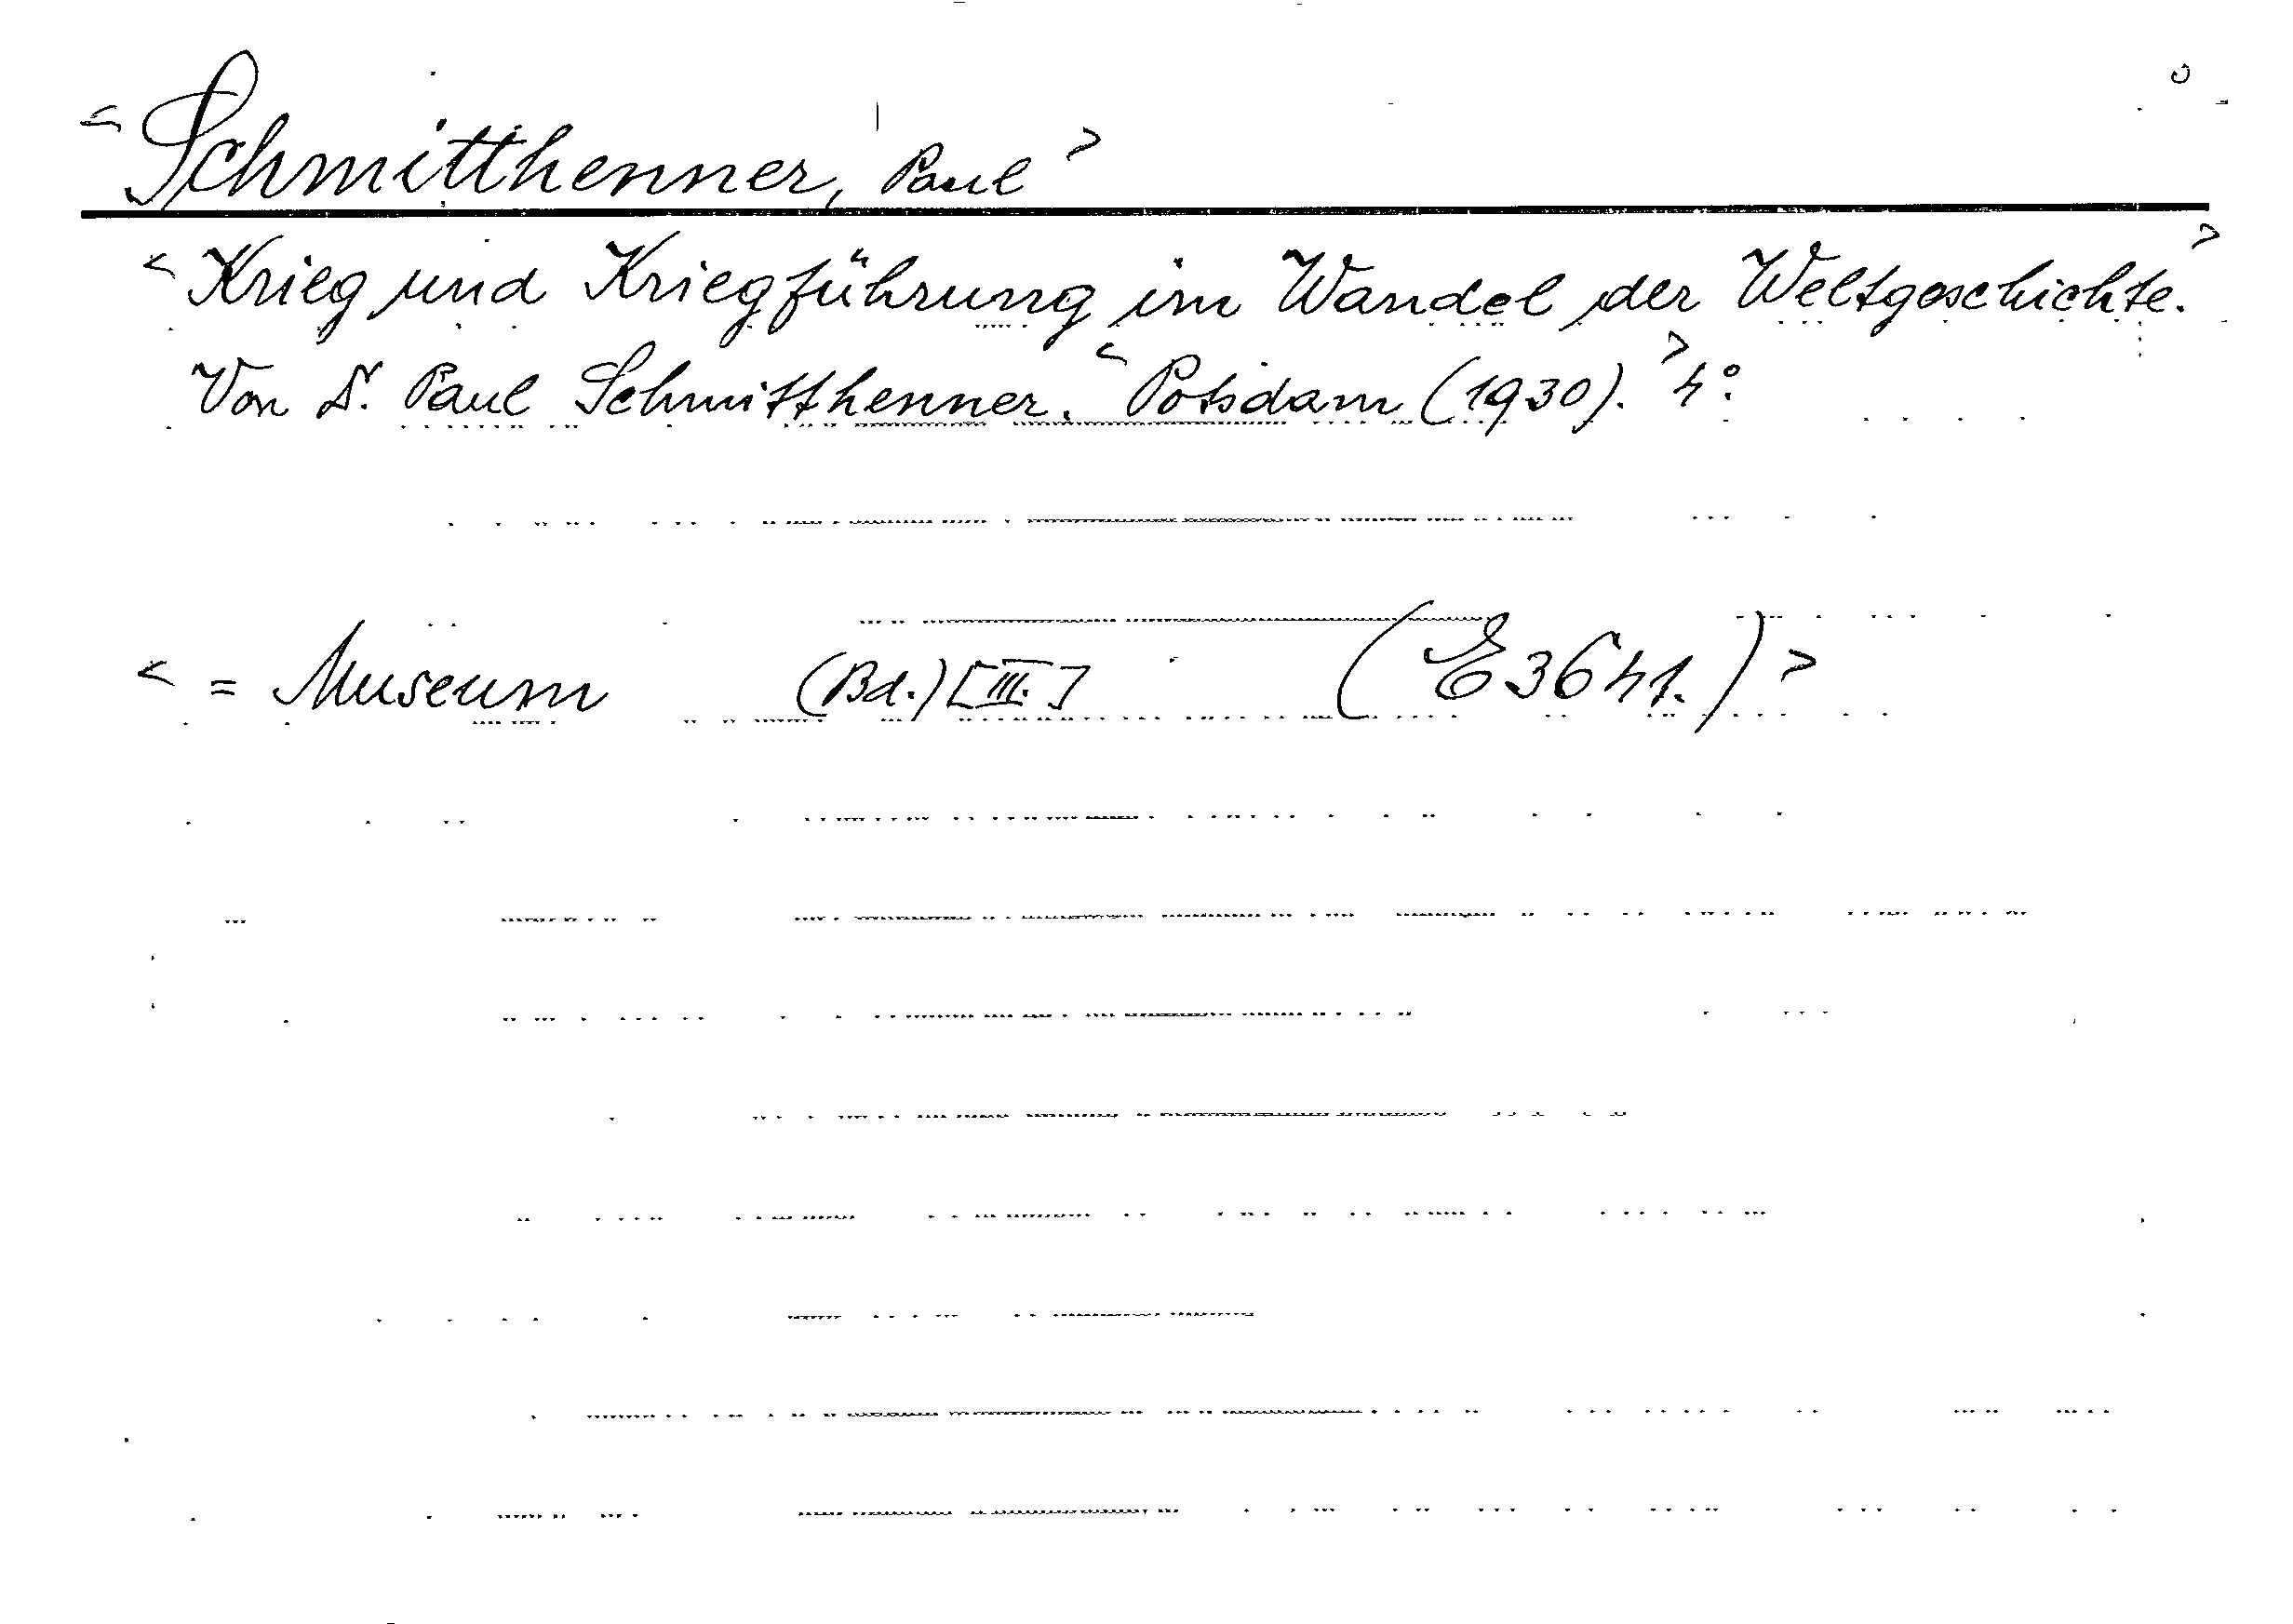 < Schmitthenner, Paul >
< Krieg und Kriegführung im Wandel der Weltgeschichte. >
Von Dr. Paul Schmitthenner. < Potsdam (1930). > 4°.
< = Museum (Bd.) [III.] (E 3641.) >